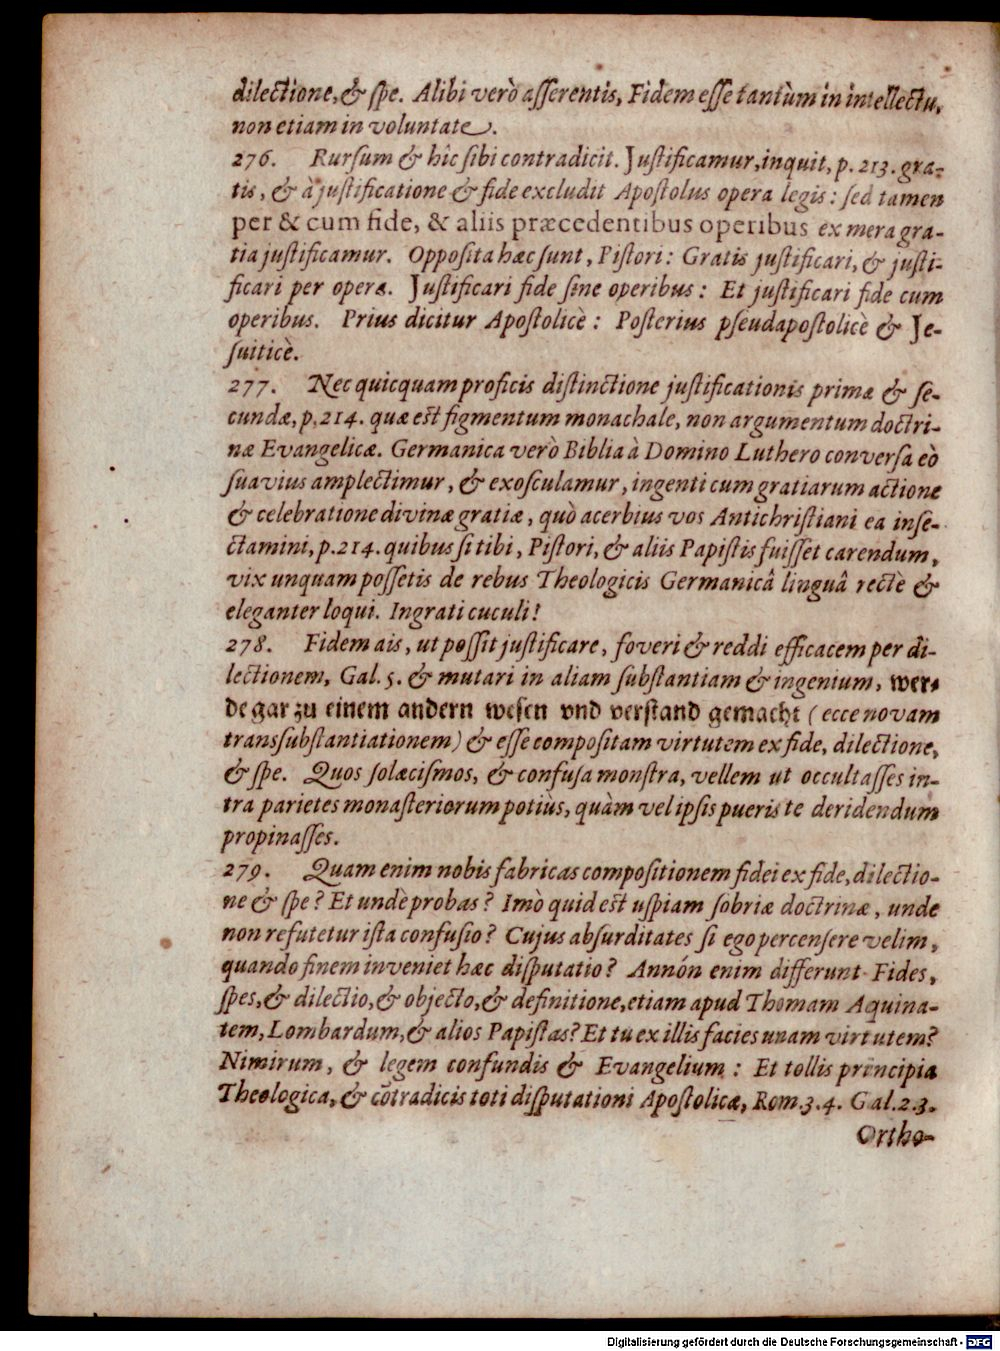 dilectione, & spe. Alibi verò asserentis, Fidem esse tantùm in intellectu,
non etiam in voluntate.
276. Rursum & hîc sibi contradicit. Justificamur, inquit, p. 213. gra-
tis, & à justificatione & fide excludit Apostolus opera legis: sed tamen
per & cum fide, & aliis præcedentibus operibus ex mera gra-
tia justificamur. Opposita hæc sunt, Pistori: Gratis justificari, & justi-
ficari per opera. Justificari fide sine operibus: Et justificari fide cum
operibus. Prius dicitur Apostolicè: Posterius pseudapostolicè & Je-
suiticè.
277. Nec quicquam proficis distinctione justificationis primæ & se-
cundæ, p. 214. quæ est figmentum monachale, non argumentum doctri-
næ Evangelicæ. Germanica verò Biblia à Domino Luthero conversa eò
suavius amplectimur, & exosculamur, ingenti cum gratiarum actione
& celebratione divinæ gratiæ, quò acerbius vos Antichristiani ea inse-
ctamini, p. 214. quibus si tibi, Pistori, & aliis Papistis fuisset carendum,
vix unquam possetis de rebus Theologicis Germanicâ linguâ rectè &
eleganter loqui. Ingrati cuculi!
278. Fidem ais, ut possit justificare, foveri & reddi efficacem per di-
lectionem, Gal. 5. & mutari in aliam substantiam & ingenium, wer-
de gar zu einem andern wesen vnd verstand gemacht (ecce novam
transsubstantiationem) & esse compositam virtutem ex fide, dilectione,
& spe. Quos solæcismos, & confusa monstra, vellem ut occultasses in-
tra parietes monasteriorum potiùs, quàm vel ipsis pueris te deridendum
propinasses.
279. Quam enim nobis fabricas compositionem fidei ex fide, dilectio-
ne & spe? Et undè probas? Imò quid est uspiam sobriæ doctrinæ, unde
non refutetur ista confusio? Cujus absurditates si ego percensere velim,
quando finem inveniet hæc disputatio? Annón enim differunt Fides,
spes, & dilectio, & objecto, & definitione, etiam apud Thomam Aquina-
tem, Lombardum, & alios Papistas? Et tu ex illis facies unam virtutem?
Nimirum, & legem confundis & Evangelium: Et tollis principia
Theologica, & cõtradicis toti disputationi Apostolicæ, Rom. 3. 4. Gal. 2. 3.
Ortho-
Digitalisierung gefördert durch die Deutsche Forschungsgemeinschaft - DFG